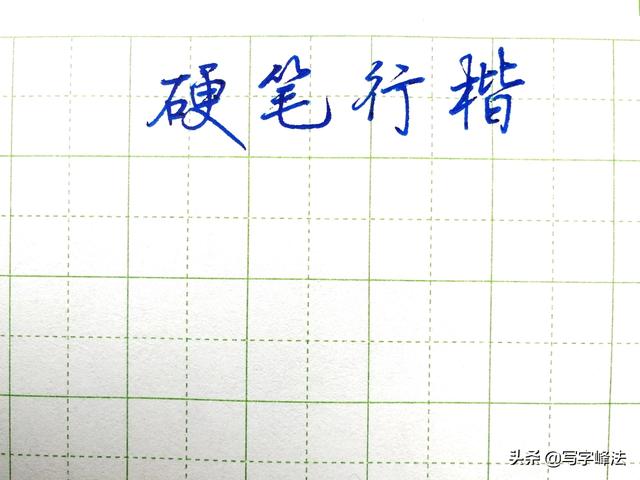 硬笔行楷
头条 @写字峰法